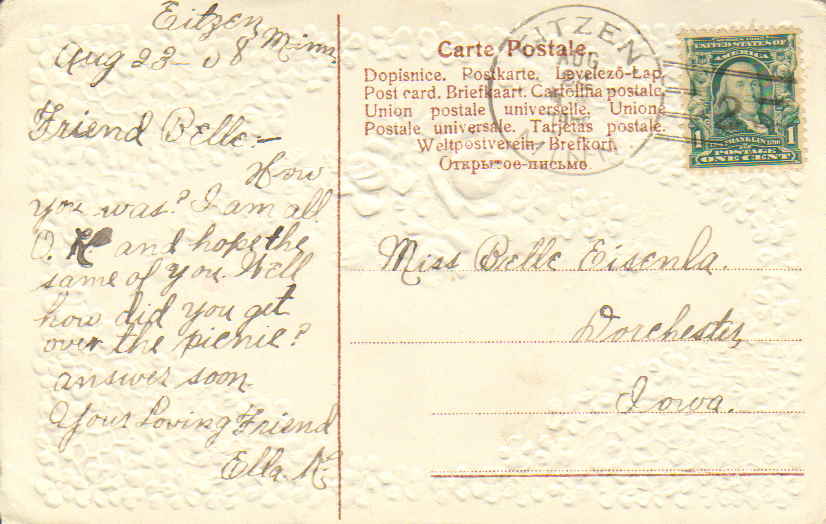 Eitzen Minn.
Aug 23 - 08
Friend Belle:-
How
you was? I am all
O. K and hope the
same of you. Well
how did you get
over the picnic?
answer soon.
Your Loving Friend
Ella. K.
Carte Postale.
Dopisnice. Postkarte. Levelező-Lap.
Post card. Briefkaart. Cartolina postale.
Union postale universelle. Unione
Postale universale. Tarjetas postale.
Weltpostverein. Brefkort.
Открытое-письмо.
EITZEN
AUG
MINN
UNITED STATES OF
AMERICA
1 FRANKLIN 1
POSTAGE
ONE CENT
Miss Belle Eisenla.
Dorchester,
Iowa.